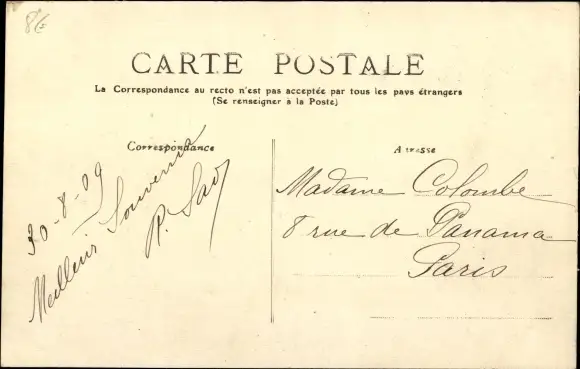 8€
CARTE POSTALE
La Correspondance au recto n'est pas acceptée par tous les pays étrangers
(Se renseigner à la Poste)
Correspondance
Adresse
30-8-09
Meilleur Souvenir
P.
Madame Colombe
8 rue de Panama
Paris